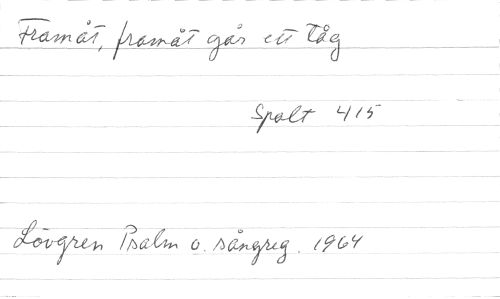 Framåt, framåt går ett tåg
Spalt 415
Lövgren Psalm o. sångreg. 1964